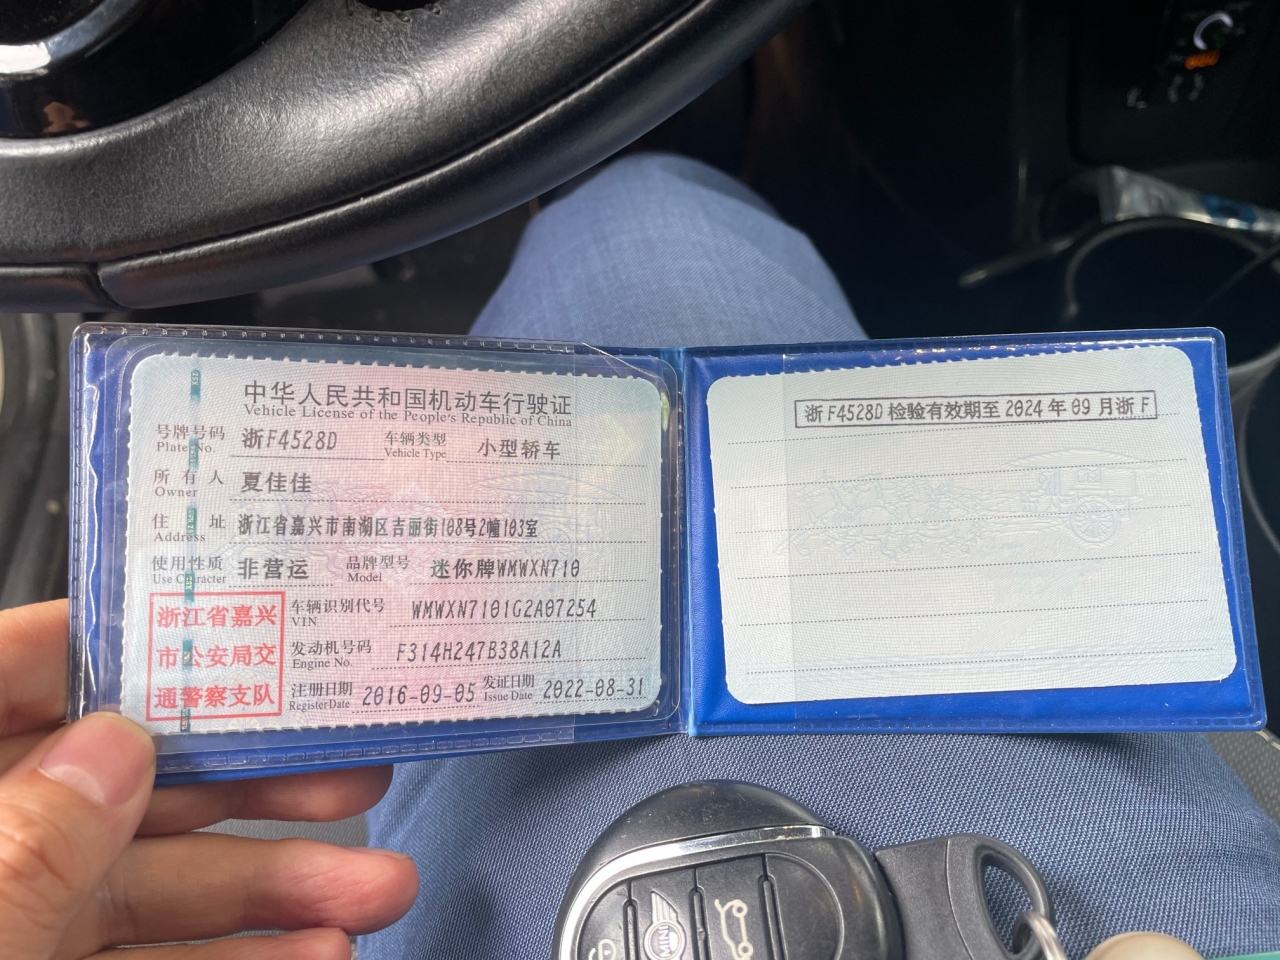 中华人民共和国机动车行驶证
Vehicle License of the People's Republic of China
号牌号码 浙F4528D 车辆类型 小型轿车
Plate No. Vehicle Type
所有人 夏佳佳
Owner
住址 浙江省嘉兴市南湖区吉丽街108号2幢103室
Address
使用性质 非营运 品牌型号 迷你牌WMWXN710
Use Character Model
浙江省嘉兴
市公安局交
通警察支队
车辆识别代号 WMWXN7101G2A07254
VIN
发动机号码 F314H247B38A12A
Engine No.
注册日期 2016-09-05 发证日期 2022-08-31
Register Date Issue Date
浙F4528D 检验有效期至 2024 年 09 月浙 F
MINI